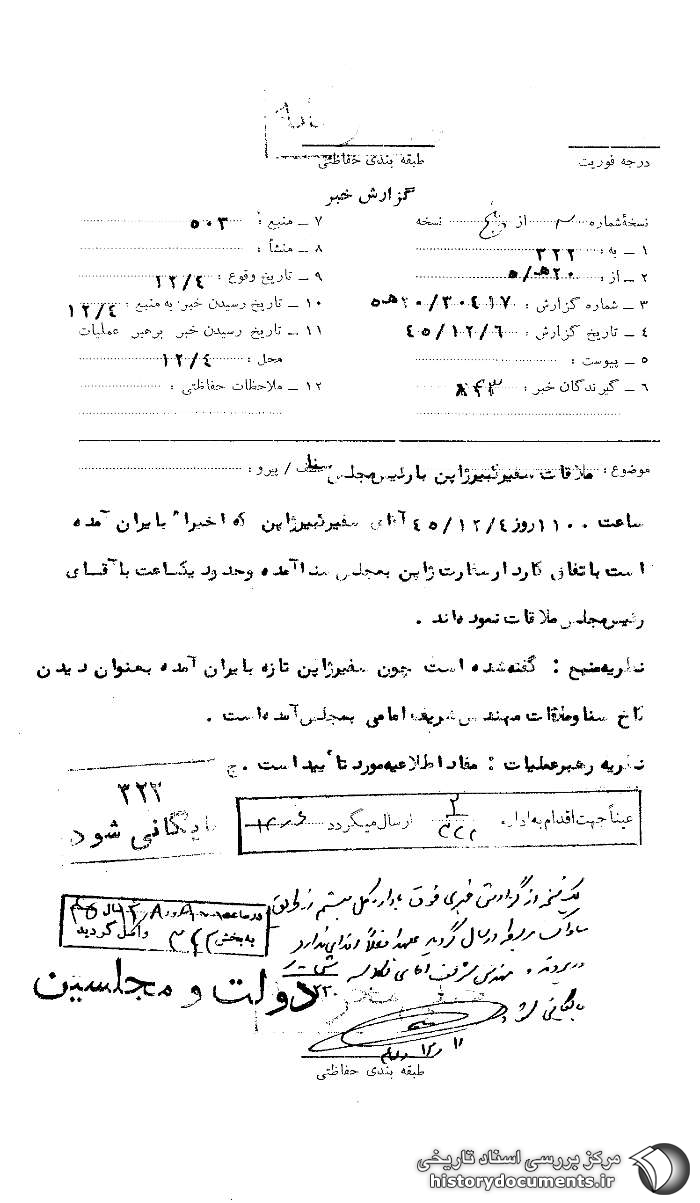 طبقه بندی حفاظتی
درجه فوریت
گزارش خبر
نسخهٔ شماره ۳ از پنج نسخه
۱ ــ به : ۳۲۲
۲ ــ از : ۲۰هـ/۵
۳ ــ شماره گزارش : ۳۰۴۱۷/۲۰هـ۵
۴ ــ تاریخ گزارش : ۴۵/۱۲/۶
۵ ــ پیوست :
۶ ــ گیرندگان خبر : ۸۴۳
۷ ــ منبع : ۵۰۳
۸ ــ منشأ :
۹ ــ تاریخ وقوع : ۱۲/۴
۱۰ ــ تاریخ رسیدن خبر به منبع : ۱۲/۴
۱۱ ــ تاریخ رسیدن خبر برهبر عملیات
محل : ۱۲/۴
۱۲ ــ ملاحظات حفاظتی :
موضوع : ملاقات سفیرکبیر ژاپن با رئیس مجلس سنا / پیرو :
ساعت ۱۱۰۰ روز ۴۵/۱۲/۴ آقای سفیرکبیر ژاپن که اخیرا" بایران آمده
است باتفاق کاردار سفارت ژاپن بمجلس سنا آمده وحدود یکساعت با آقای
رئیس مجلس ملاقات نموده‌اند .
نظریه منبع : گفته شده است چون سفیر ژاپن تازه بایران آمده بعنوان دیدن
کاخ سنا وملاقات مهندس شریف امامی بمجلس آمده است .
نظریه رهبر عملیات : مفاد اطلاعیه مورد تأیید است . ج
۳۲۲
بایگانی شود
عیناً جهت اقدام به اداره ۲/۳۲۲ ارسال میگردد
یک نسخه از گزارش خبری فوق به اداره کل هشتم از طریق
ساواک مربوطه ارسال گردید
در پرونده مهندس شریف امامی
بایگانی شود
به بخش ۳۲۲ واصل گردید
دولت و مجلسین
طبقه بندی حفاظتی
مرکز بررسی اسناد تاریخی
historydocuments.ir